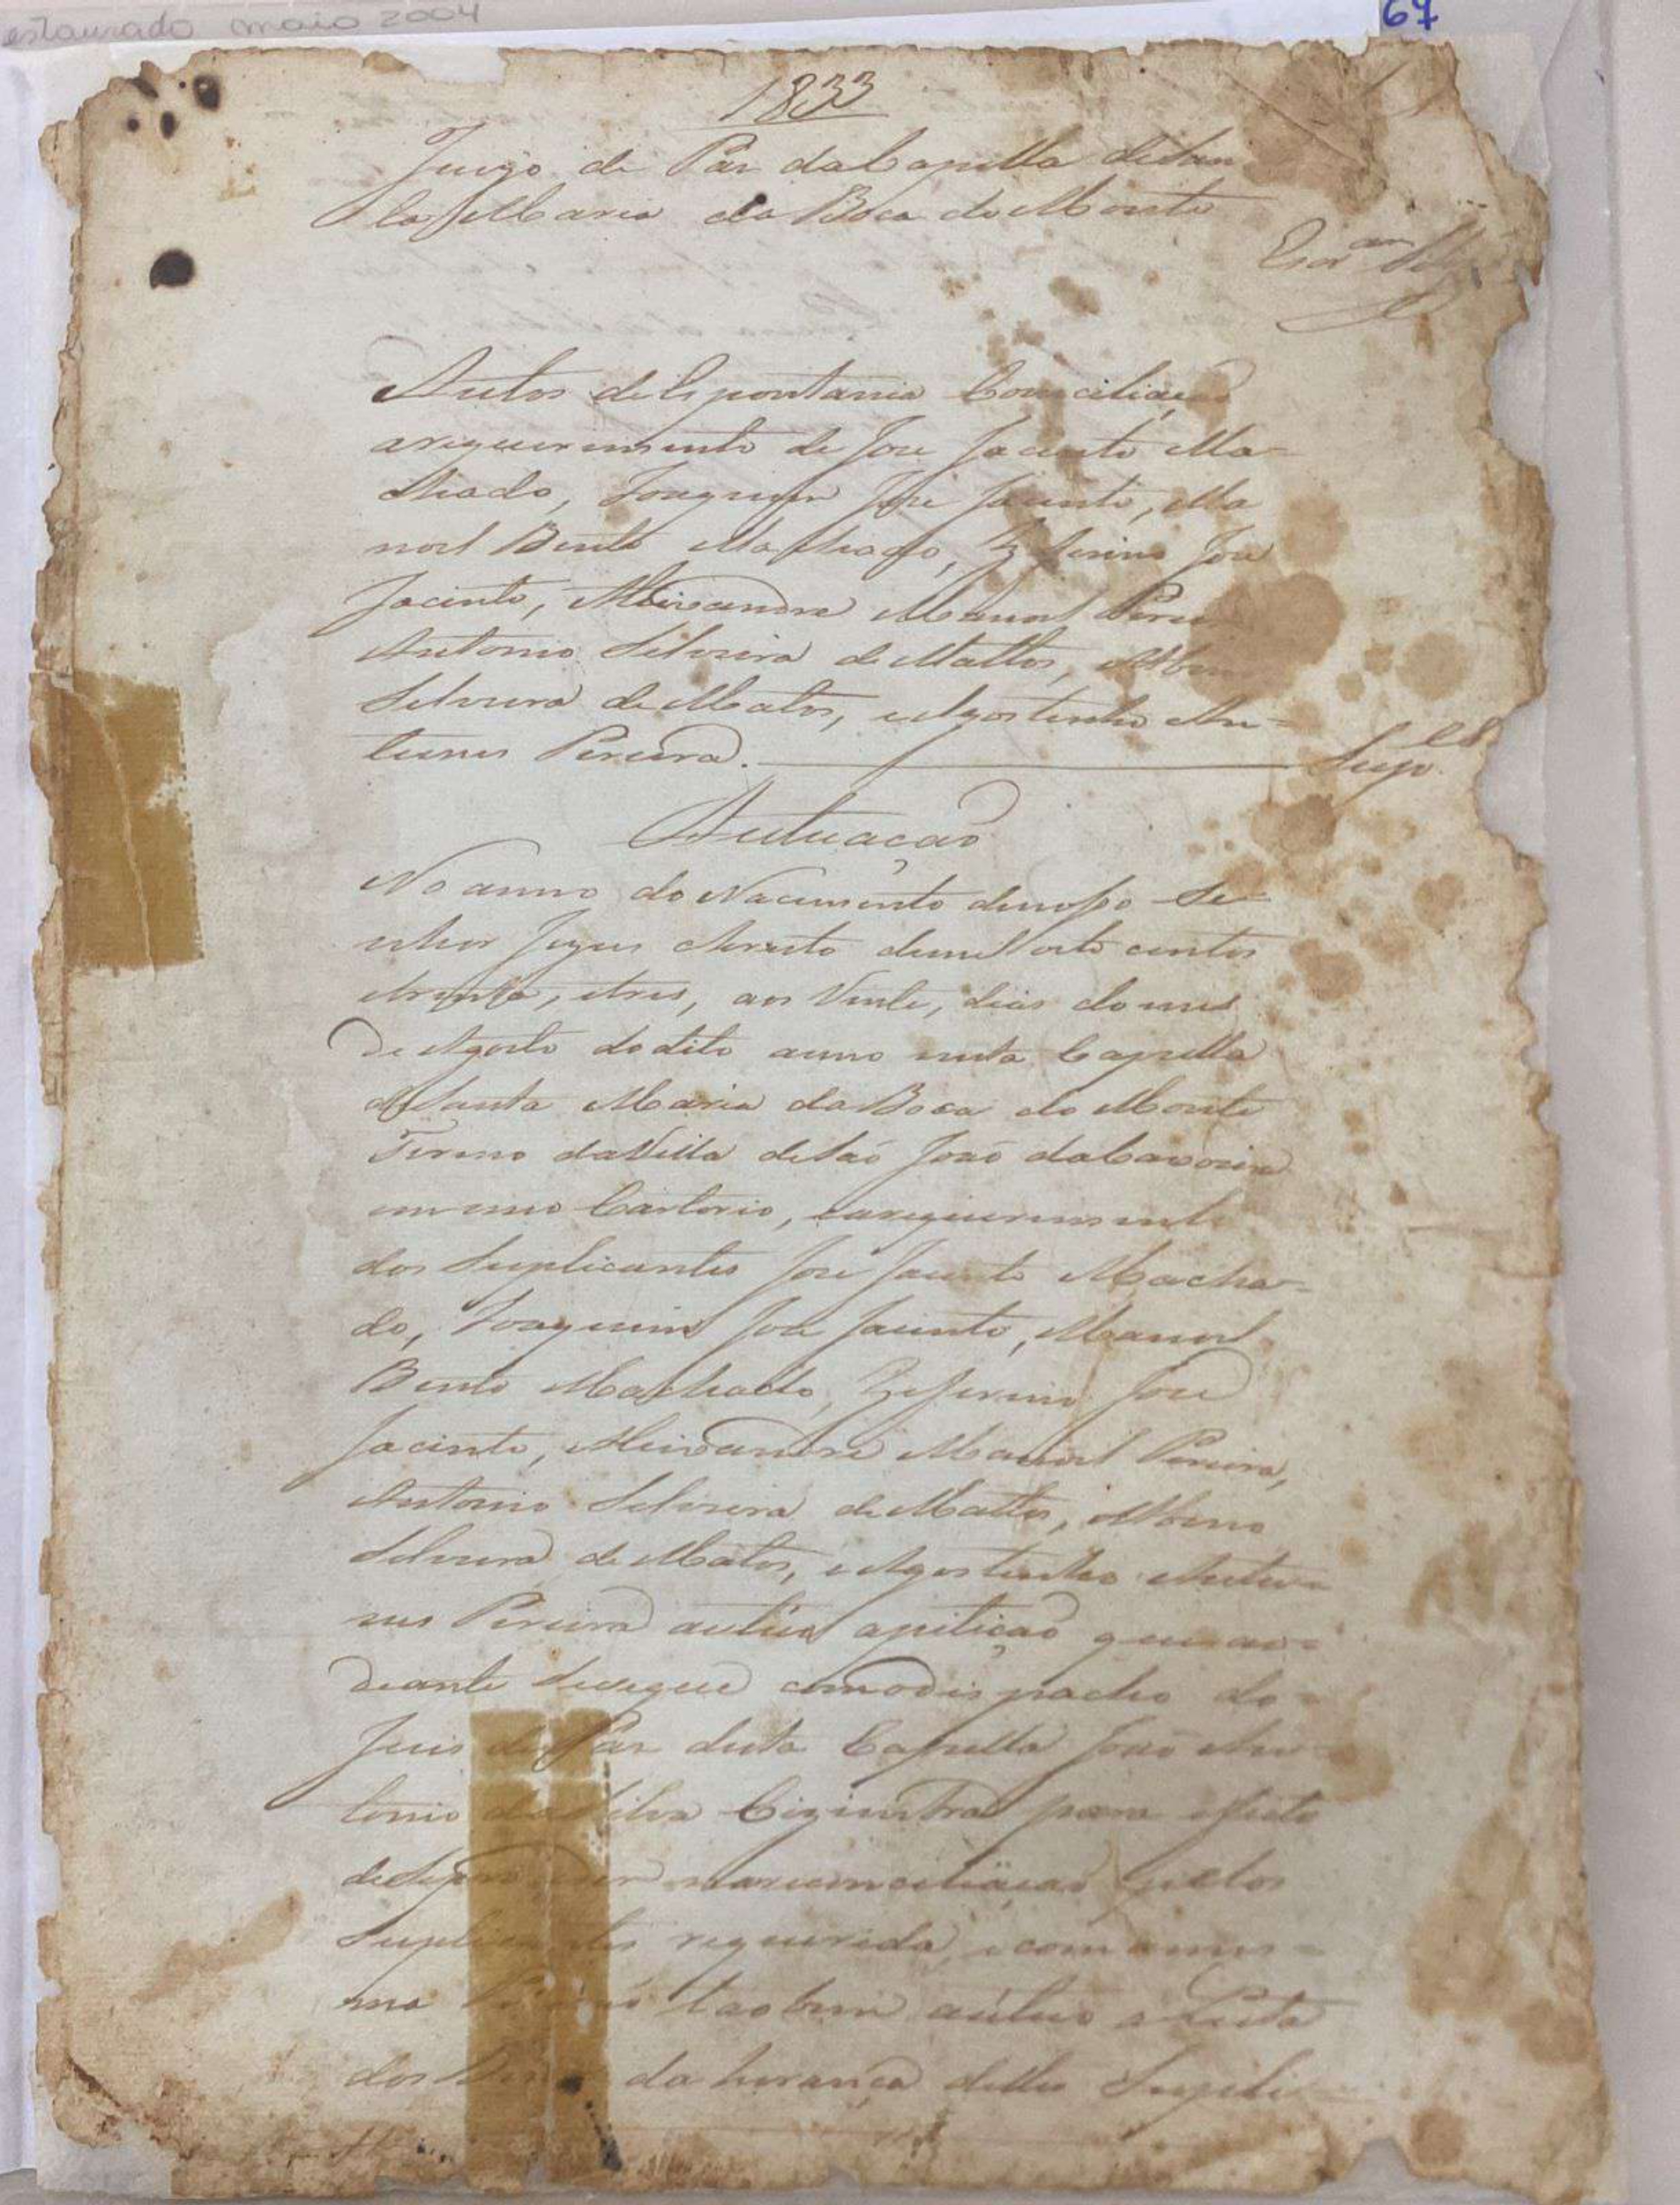 estaurado maio 2004
67
1833
Juizo de Pas da Capella de San
ta Maria da Boca do Monte
Escr.am
Autos de Espontania Conciliação
a requerimento de Jose Jacinto Ma-
chado, Joaquim Jose Jacinto, Ma
noel Bento Machado, Zeferino Jose
Jacinto, Alexandre Manoel Perei
Antonio Silveira de Mattos,
Silveira de Matos, e Agostinho An-
tunes Pereira. Sup.es
Autuação
No anno do Nacimento de nosso Se-
nhor Jezus Christo de mil oito centos
e trinta, e tres, aos Vinte, dias do mes
de Agosto do dito anno nesta Capella
de Santa Maria da Boca do Monte
Termo da Villa de São João da Caxoeira
em meu Cartorio, e a requerimento
dos Suplicantes Jose Jacinto Macha-
do, Joaquim Jose Jacinto, Manoel
Bento Machado, Zeferino Jose
Jacinto, Alexandre Manoel Pereira,
Antonio Silveira de Mattos,
Silveira de Matos, e Agostinho Antu-
nes Pereira autúo a petição que ao-
deante se segue com o despacho do
Juis de Pas desta Capella João An-
tonio da Silva Cezimbra para efeito
de se proceder na reconciliação pelos
Suplicantes requerida, e com a mes-
ma Petição tãobem autuo a Lista
dos Bens da herança delles Supli-